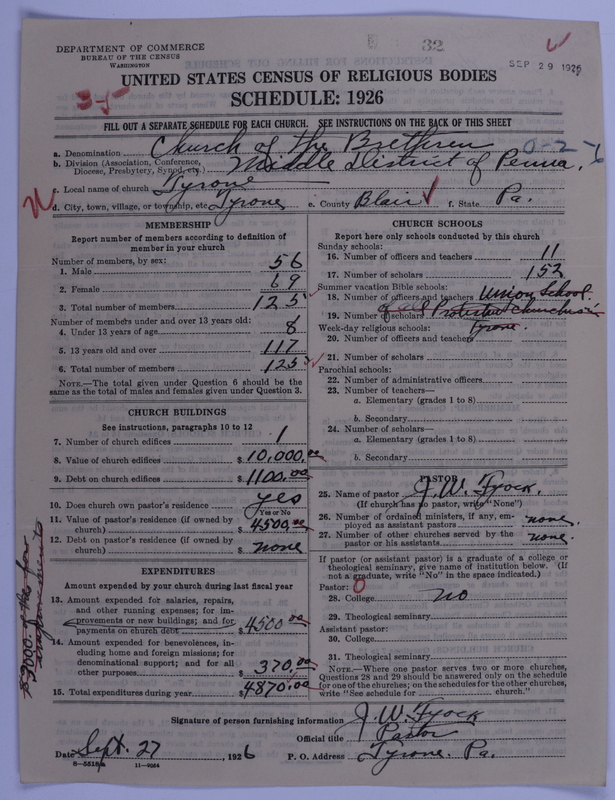 32
SEP 29 1926
DEPARTMENT OF COMMERCE
BUREAU OF THE CENSUS
WASHINGTON
UNITED STATES CENSUS OF RELIGIOUS BODIES
SCHEDULE: 1926
3-5-
FILL OUT A SEPARATE SCHEDULE FOR EACH CHURCH. SEE INSTRUCTIONS ON THE BACK OF THIS SHEET
a. Denomination Church of the Brethren
0-2-6
b. Division (Association, Conference, Diocese, Presbytery, Synod, etc.) Middle District of Penna.
c. Local name of church Tyrone
d. City, town, village, or township, etc. Tyrone e. County Blair f. State Pa.
MEMBERSHIP
Report number of members according to definition of
member in your church
Number of members, by sex:
1. Male 56
2. Female 69
3. Total number of members 125
Number of members under and over 13 years old:
4. Under 13 years of age 8
5. 13 years old and over 117
6. Total number of members 125
NOTE.—The total given under Question 6 should be the
same as the total of males and females given under Question 3.
CHURCH BUILDINGS
See instructions, paragraphs 10 to 12
7. Number of church edifices 1
8. Value of church edifices $ 10,000.00
9. Debt on church edifices $ 1100.00
10. Does church own pastor's residence? yes
Yes or No
11. Value of pastor's residence (if owned by
church) $ 4500.00
12. Debt on pastor's residence (if owned by
church) $ none
EXPENDITURES
Amount expended by your church during last fiscal year
13. Amount expended for salaries, repairs,
and other running expenses; for im-
provements or new buildings; and for
payments on church debt $ 4500.00
14. Amount expended for benevolences, in-
cluding home and foreign missions; for
denominational support; and for all
other purposes $ 370.00
15. Total expenditures during year $ 4870.00
CHURCH SCHOOLS
Report here only schools conducted by this church
Sunday schools:
16. Number of officers and teachers 11
17. Number of scholars 152
Summer vacation Bible schools:
18. Number of officers and teachers Union School.
19. Number of scholars of all Protestant Churches in
Week-day religious schools: Tyrone.
20. Number of officers and teachers
21. Number of scholars
Parochial schools:
22. Number of administrative officers
23. Number of teachers—
a. Elementary (grades 1 to 8)
b. Secondary
24. Number of scholars—
a. Elementary (grades 1 to 8)
b. Secondary
PASTOR
25. Name of pastor J. W. Fyock.
(If church has no pastor, write "None")
26. Number of ordained ministers, if any, em-
ployed as assistant pastors none.
27. Number of other churches served by the
pastor or his assistants none.
If pastor (or assistant pastor) is a graduate of a college or
theological seminary, give name of institution below. (If
not a graduate, write "No" in the space indicated.)
Pastor: 0
28. College no
29. Theological seminary
Assistant pastor:
30. College
31. Theological seminary
NOTE.—Where one pastor serves two or more churches,
Questions 28 and 29 should be answered only on the schedule
for one of the churches; on the schedules for the other churches,
write "See schedule for church."
Signature of person furnishing information J. W. Fyock
Official title Pastor
Date Sept. 27, 1926 P. O. Address Tyrone. Pa.
8-5518a 11-9064